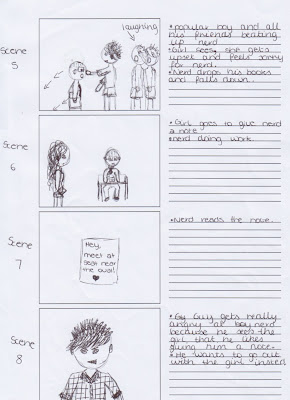 laughing
Scene
5
• popular boy and all
his friends beating
up nerd
• Girl sees, she gets
upset and feels sorry
for nerd.
• Nerd drops his books
and falls down.
Scene
6
• Girl goes to give nerd
a note
• nerd doing work.
Scene
7
Hey,
meet at
seat near
the oval!
• Nerd reads the note.
Scene
8
Guy gets really
angry at boy nerd
because he sees the
girl that he likes
giving him a note.
• He wants to go out
with the girl insted